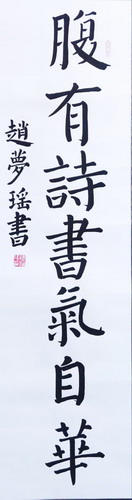 腹有詩書氣自華
趙夢瑶書